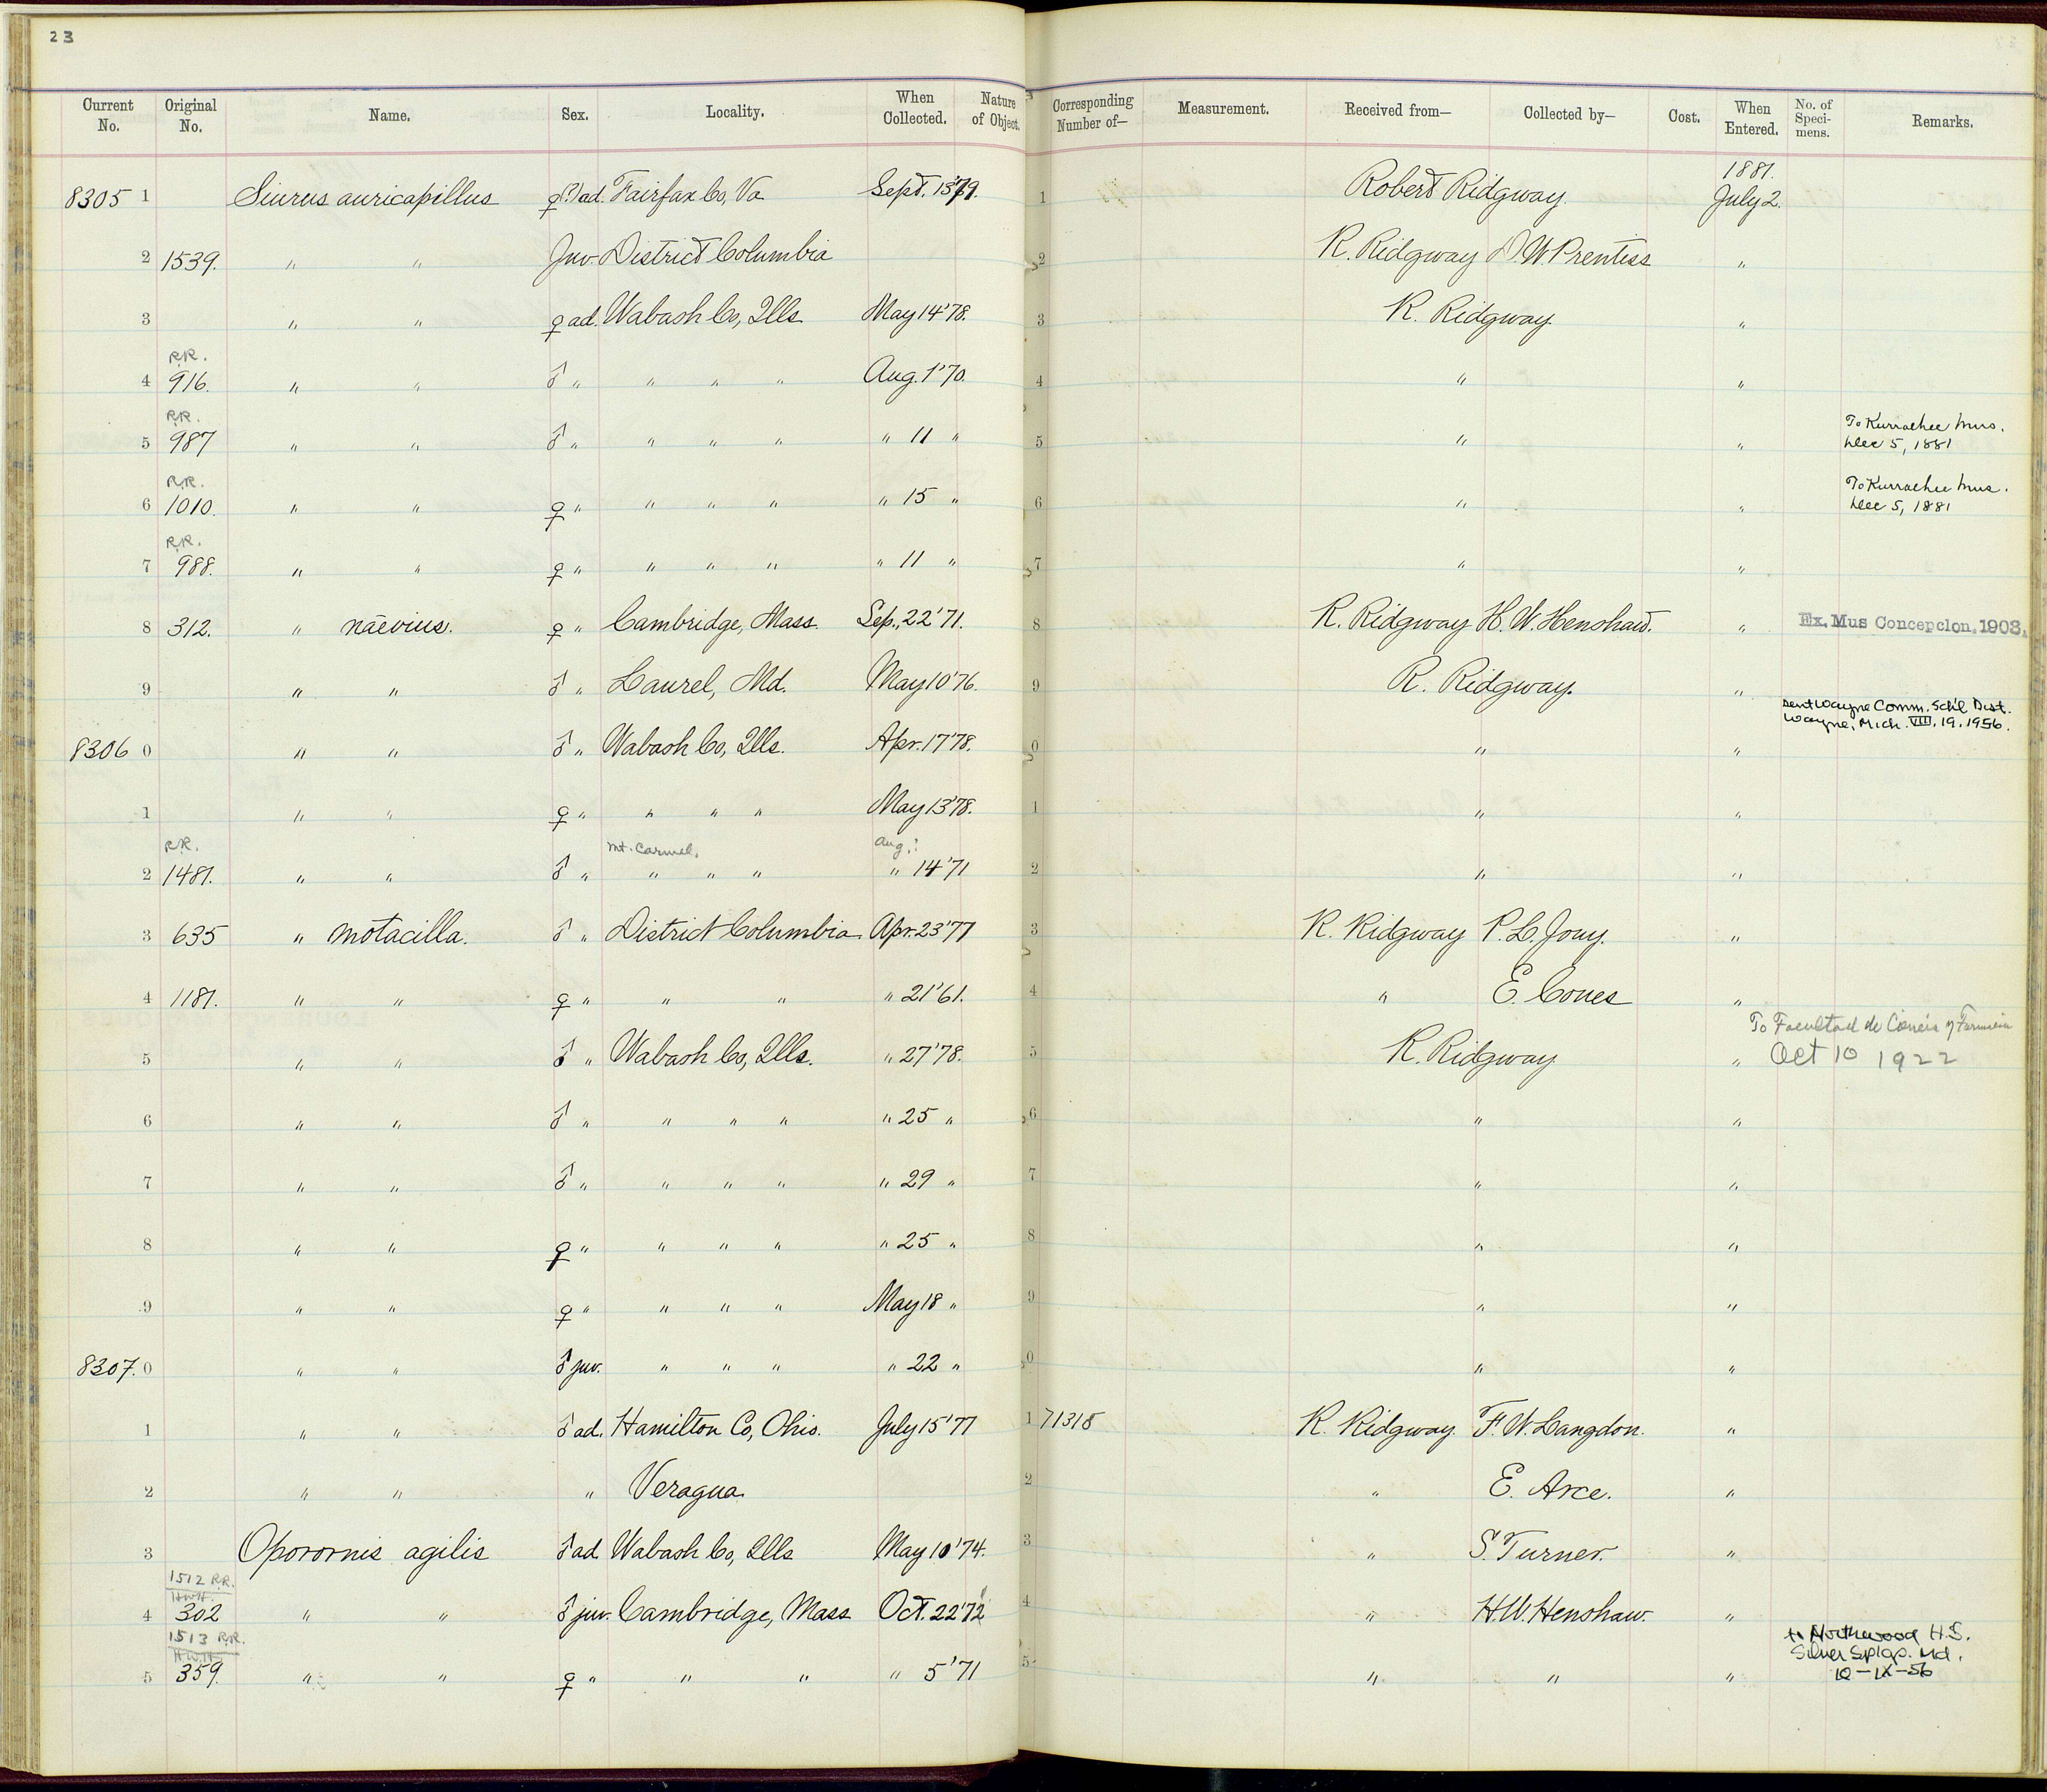 23
Current No. Original No. Name. Sex. Locality. When Collected. Nature of Object. Corresponding Number of— Measurement. Received from— Collected by— Cost. When Entered. No. of Speci- mens. Remarks.
8305 1 Siurus auricapillus ♀(?) ad. Fairfax Co, Va Sept. 13'79. 1 Robert Ridgway. 1881. July 2.
2 1539. " " Juv. District Columbia 2 R. Ridgway D. W. Prentiss "
3 " " ♀ ad. Wabash Co, Ills May 14'78. 3 R. Ridgway. "
R.R.
4 916. " " ♂ " " " " Aug. 1'70. 4 " "
R.R.
5 987 " " ♂ " " " " " 11 " 5 " " To Kurrachee Mus. Dec 5, 1881
R.R.
6 1010. " " ♀ " " " " " 15 " 6 " " To Kurrachee Mus. Dec 5, 1881
R.R.
7 988. " " ♀ " " " " " 11 " 7 " "
8 312. " naevius. ♀ " Cambridge, Mass. Sep., 22'71. 8 R. Ridgway H. W. Henshaw. " Ex. Mus Concepcion. 1903.
9 " " ♂ " Laurel, Md. May 10'76. 9 R. Ridgway. "
Sent Wayne Comm. Sch'l Dist.
Wayne, Mich. VIII. 19. 1956.
8306 0 " " ♂ " Wabash Co, Ills. Apr. 17'78. 0 " "
1 " " ♀ " " " " May 13'78. 1 " "
R.R. Mt. Carmel. Aug.:
2 1481. " " ♂ " " " " " 14'71 2 " "
3 635 " motacilla. ♂ " District Columbia. Apr. 23'77 3 R. Ridgway P. L. Jouy. "
4 1181. " " ♀ " " " " 21'61. 4 " E. Coues "
To Facultad de y
5 " " ♂ " Wabash Co, Ills. " 27'78. 5 R. Ridgway " Oct 10 1922
6 " " ♂ " " " " " 25 " 6 " "
7 " " ♂ " " " " " 29 " 7 " "
8 " " ♀ " " " " " 25 " 8 " "
9 " " ♀ " " " " May 18 " 9 " "
8307. 0 " " ♂ juv. " " " " 22 " 0 " "
1 " " ♂ ad. Hamilton Co, Ohio. July 15'77 1 71318 R. Ridgway F. W. Langdon. "
2 " " " Veragua. 2 " E. Arce. "
3 Oporornis agilis ♂ ad Wabash Co, Ills May 10'74. 3 " S. Turner. "
1512 R.R.
H.W.H.
4 302 " " ♂ juv. Cambridge, Mass Oct. 22'72 4 " H. W. Henshaw. "
1513 R.R.
H.W.H.
to Northwood H.S.
Silver Sp'gs. Md.
5 359. " " ♀ " " " " 5'71 5 " " " 12-IX-56